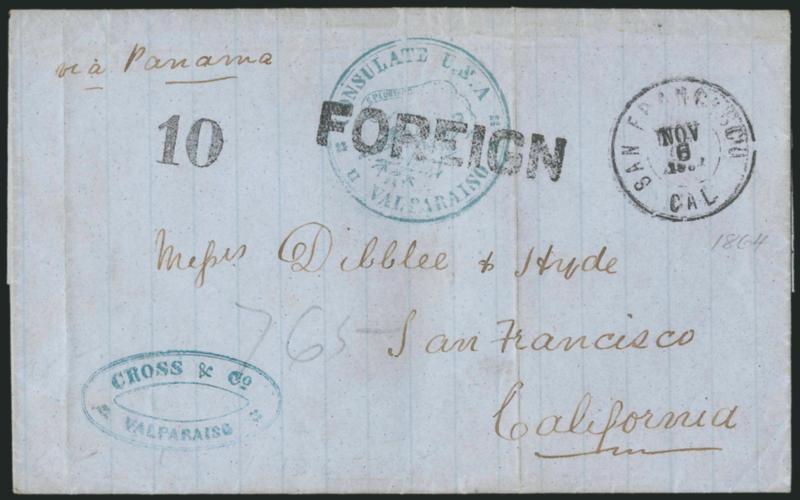 via Panama
10
CONSULATE U.S.A
VALPARAISO
FOREIGN
SAN FRANCISCO
NOV
6
CAL
1864
Messrs Dibblee & Hyde
765
San Francisco
California
CROSS & Co
VALPARAISO